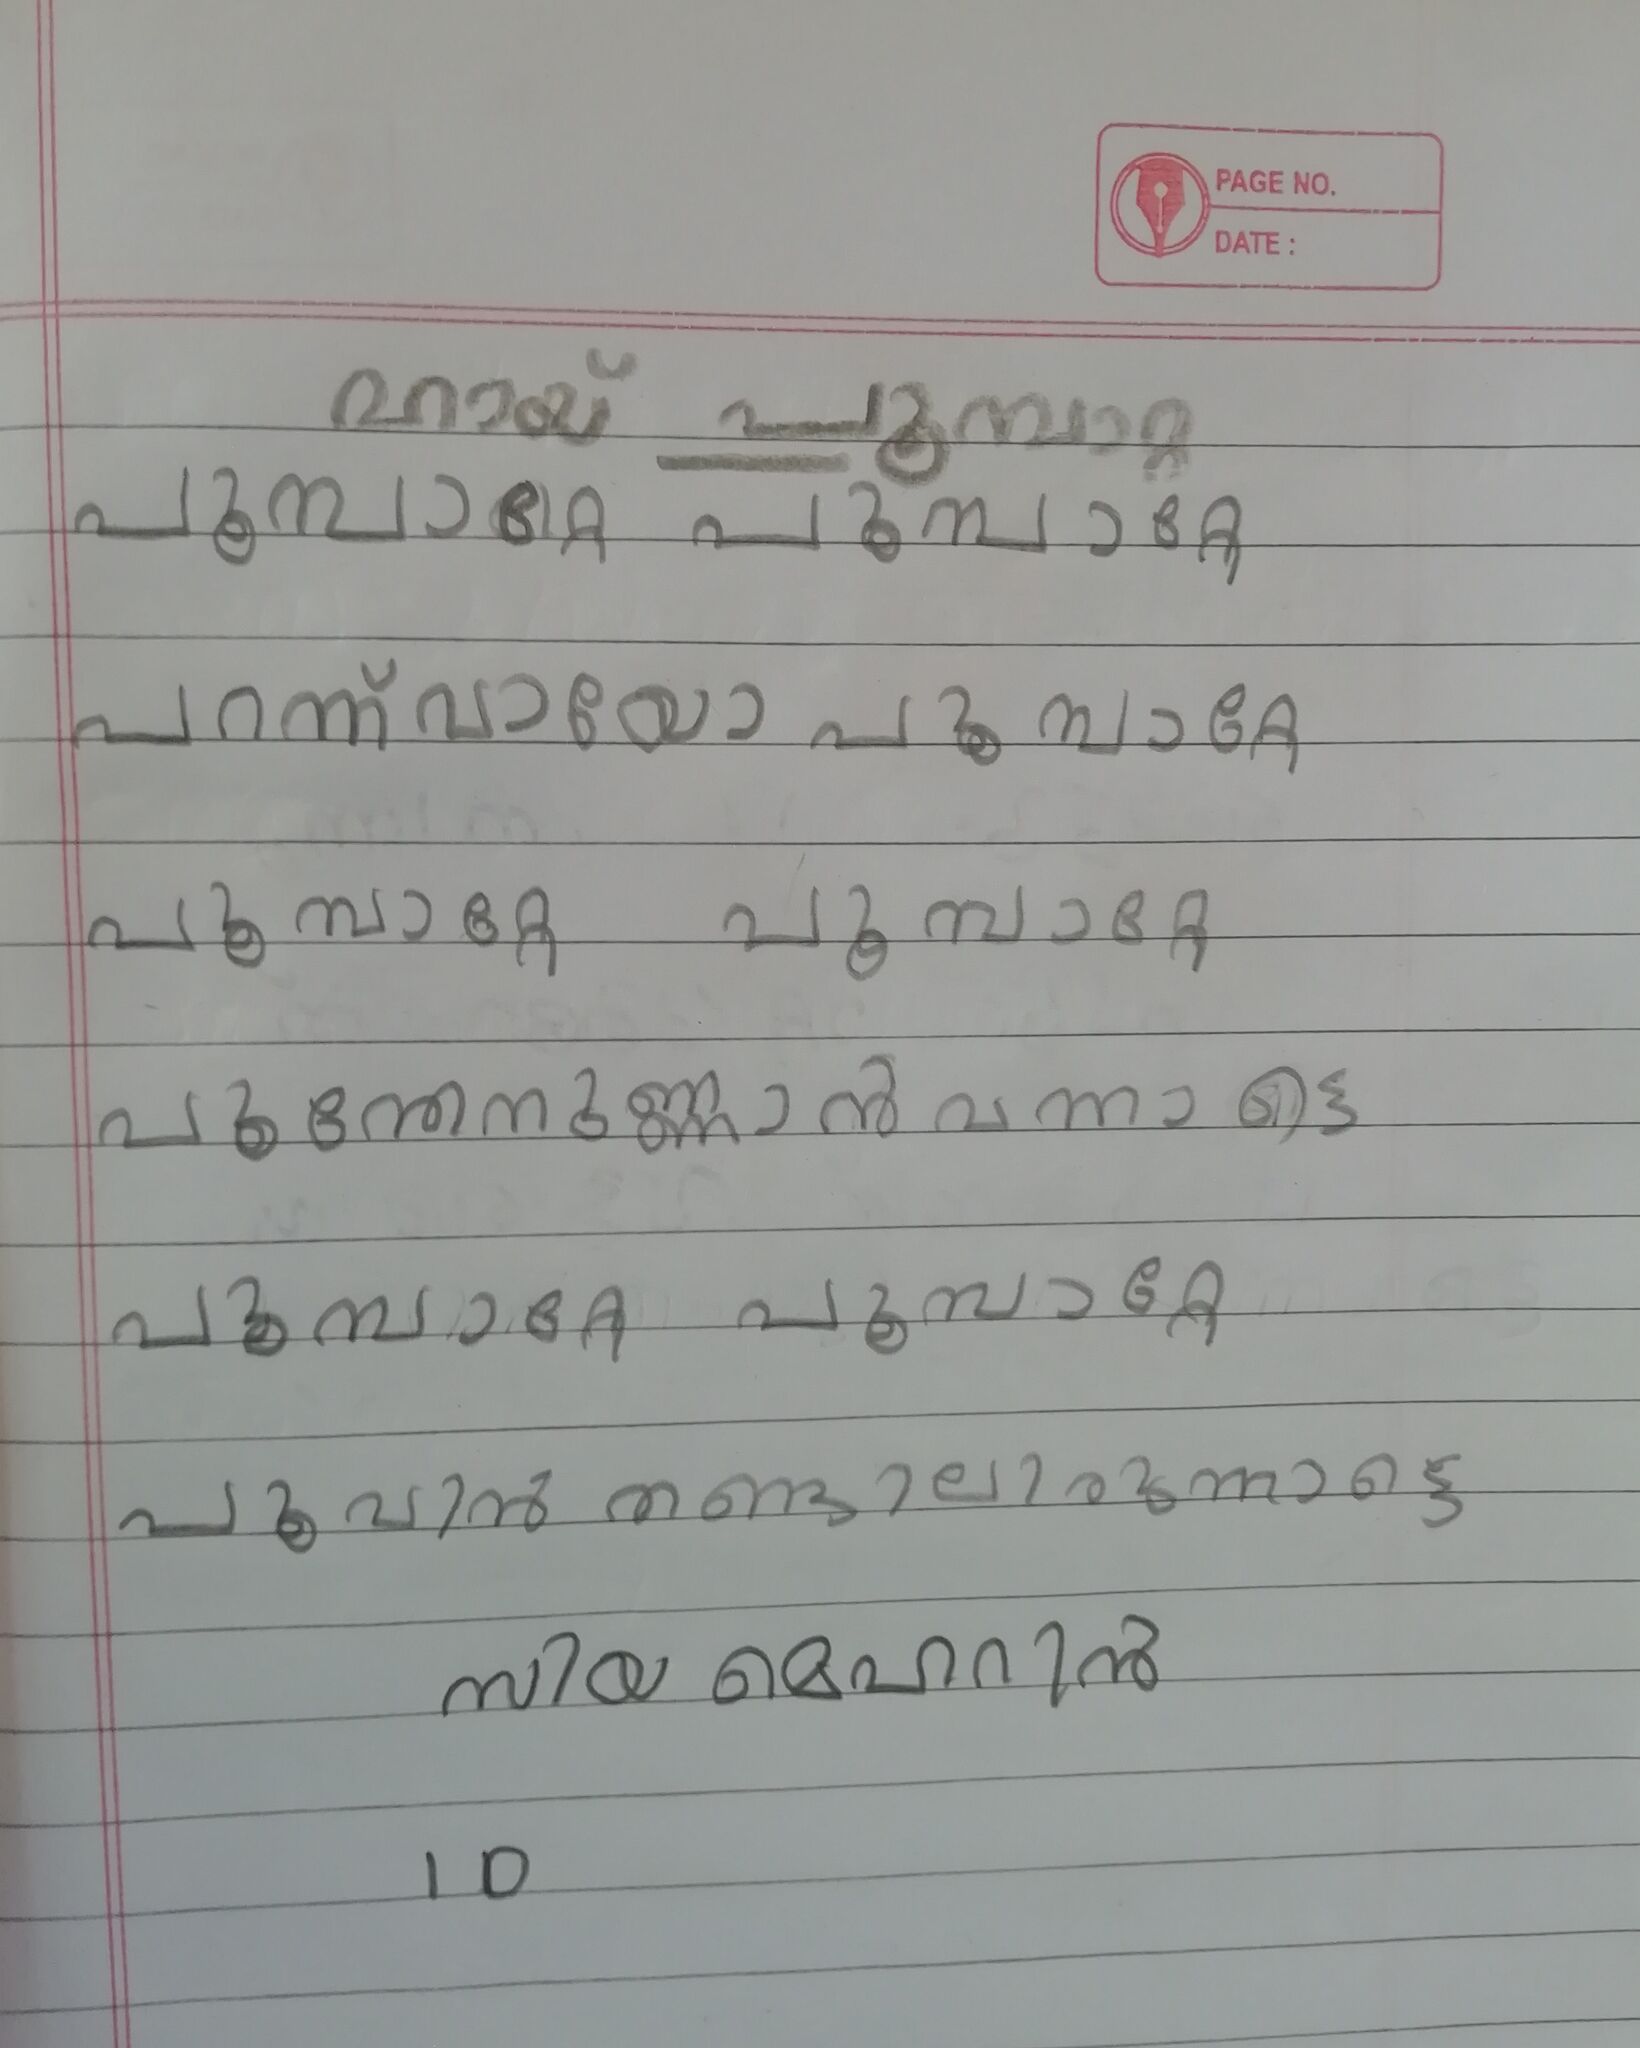 PAGE NO.
DATE :
ഹായ് പൂമ്പാറ്റ
പൂമ്പാറ്റേ പൂമ്പാറ്റേ
പറന്ന്വായോ പൂമ്പാറ്റേ
പൂമ്പാറ്റേ പൂമ്പാറ്റേ
പൂന്തേനുണ്ണാൻ വന്നാട്ടെ
പൂമ്പാറ്റേ പൂമ്പാറ്റേ
പൂവിൻ തണ്ടാലിരുന്നാട്ടെ
സിയ മെഹറിൻ
1 D